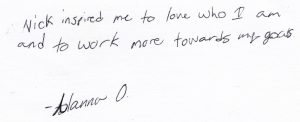 Nick inspired me to love who I am
and to work more towards my goals
-Alanna O.